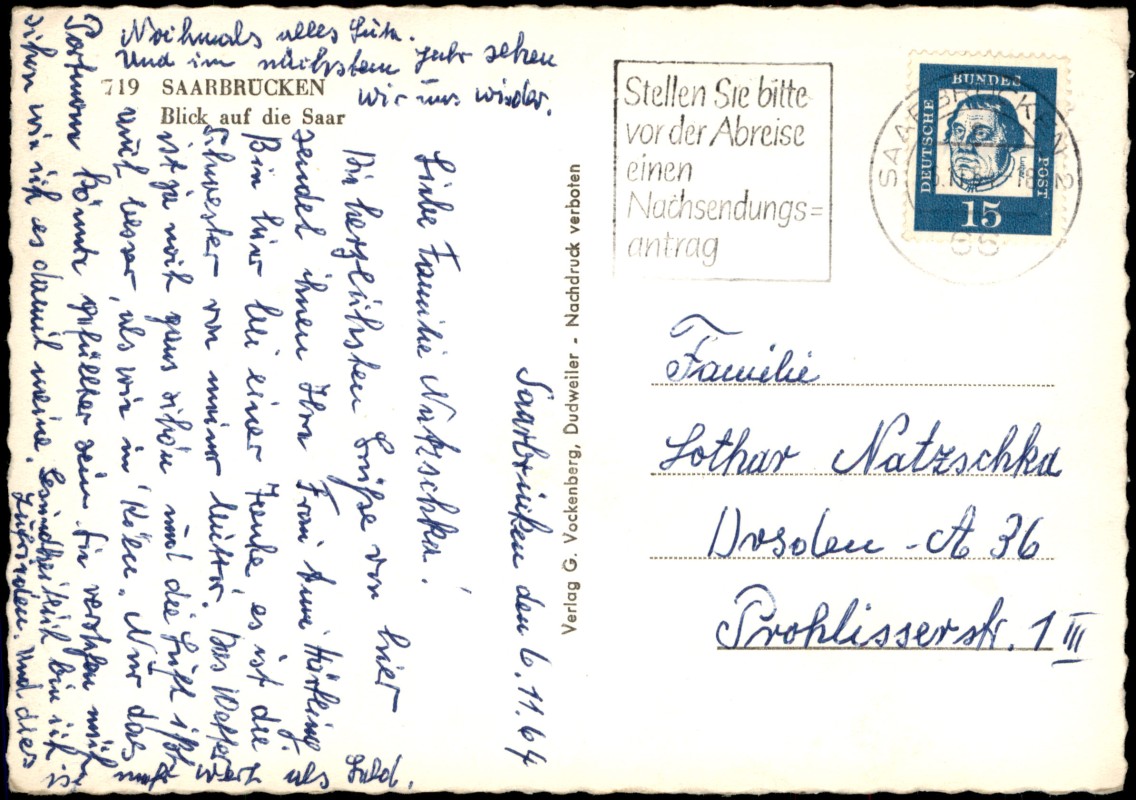 Saarbrücken den 6.11.64
Liebe Familie Natzschka!
Die herzlichsten Grüße von hier
sendet ihnen Ihre Frau Anni Härtling.
Bin hier bei einer Tante, es ist die
Schwester von meiner Mutter. Das Wetter
ist ja noch ganz schön und die Luft ist
auch besser, als wie in Köln. Nur das
Portmon könnte gefüllter sein Sie verstehen mich
schon wie ich es damit meine. Gesundheitlich bin ich
zufrieden. Und dies
ist mehr wert als Geld.
Nochmals alles Gute.
Und im nächsten Jahr sehen
wir uns wieder.
719 SAARBRÜCKEN
Blick auf die Saar
Verlag G. Vockenberg, Dudweiler - Nachdruck verboten
Stellen Sie bitte
vor der Abreise
einen
Nachsendungs=
antrag
SAARBRÜCKEN 2
66
DEUTSCHE
BUNDES
POST
15
Familie
Lothar Natzschka
Dresden - A 36
Prohlisserstr. 1 III